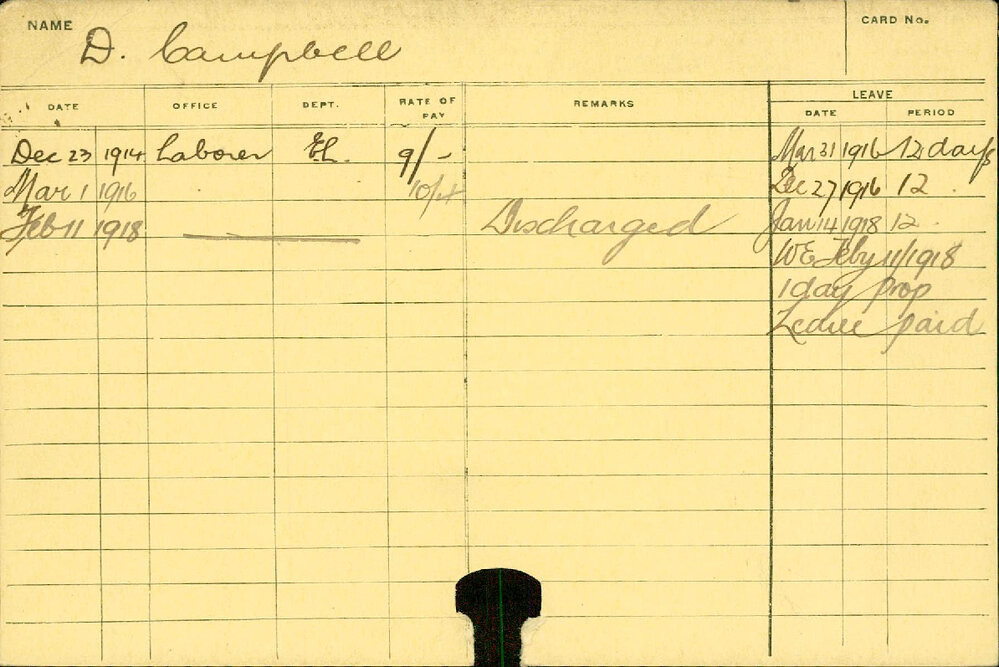 NAME D. Campbell CARD No.
DATE OFFICE DEPT. RATE OF PAY REMARKS LEAVE
DATE PERIOD
Dec 23 1914 Laborer EL. 9/- Mar 31 1916 12 days
Mar 1 1916 10/4 Dec 27 1916 12
Feb 11 1918 Discharged Jan 14 1918 12
WE Feby 11/1918
1 day prop
Leave paid